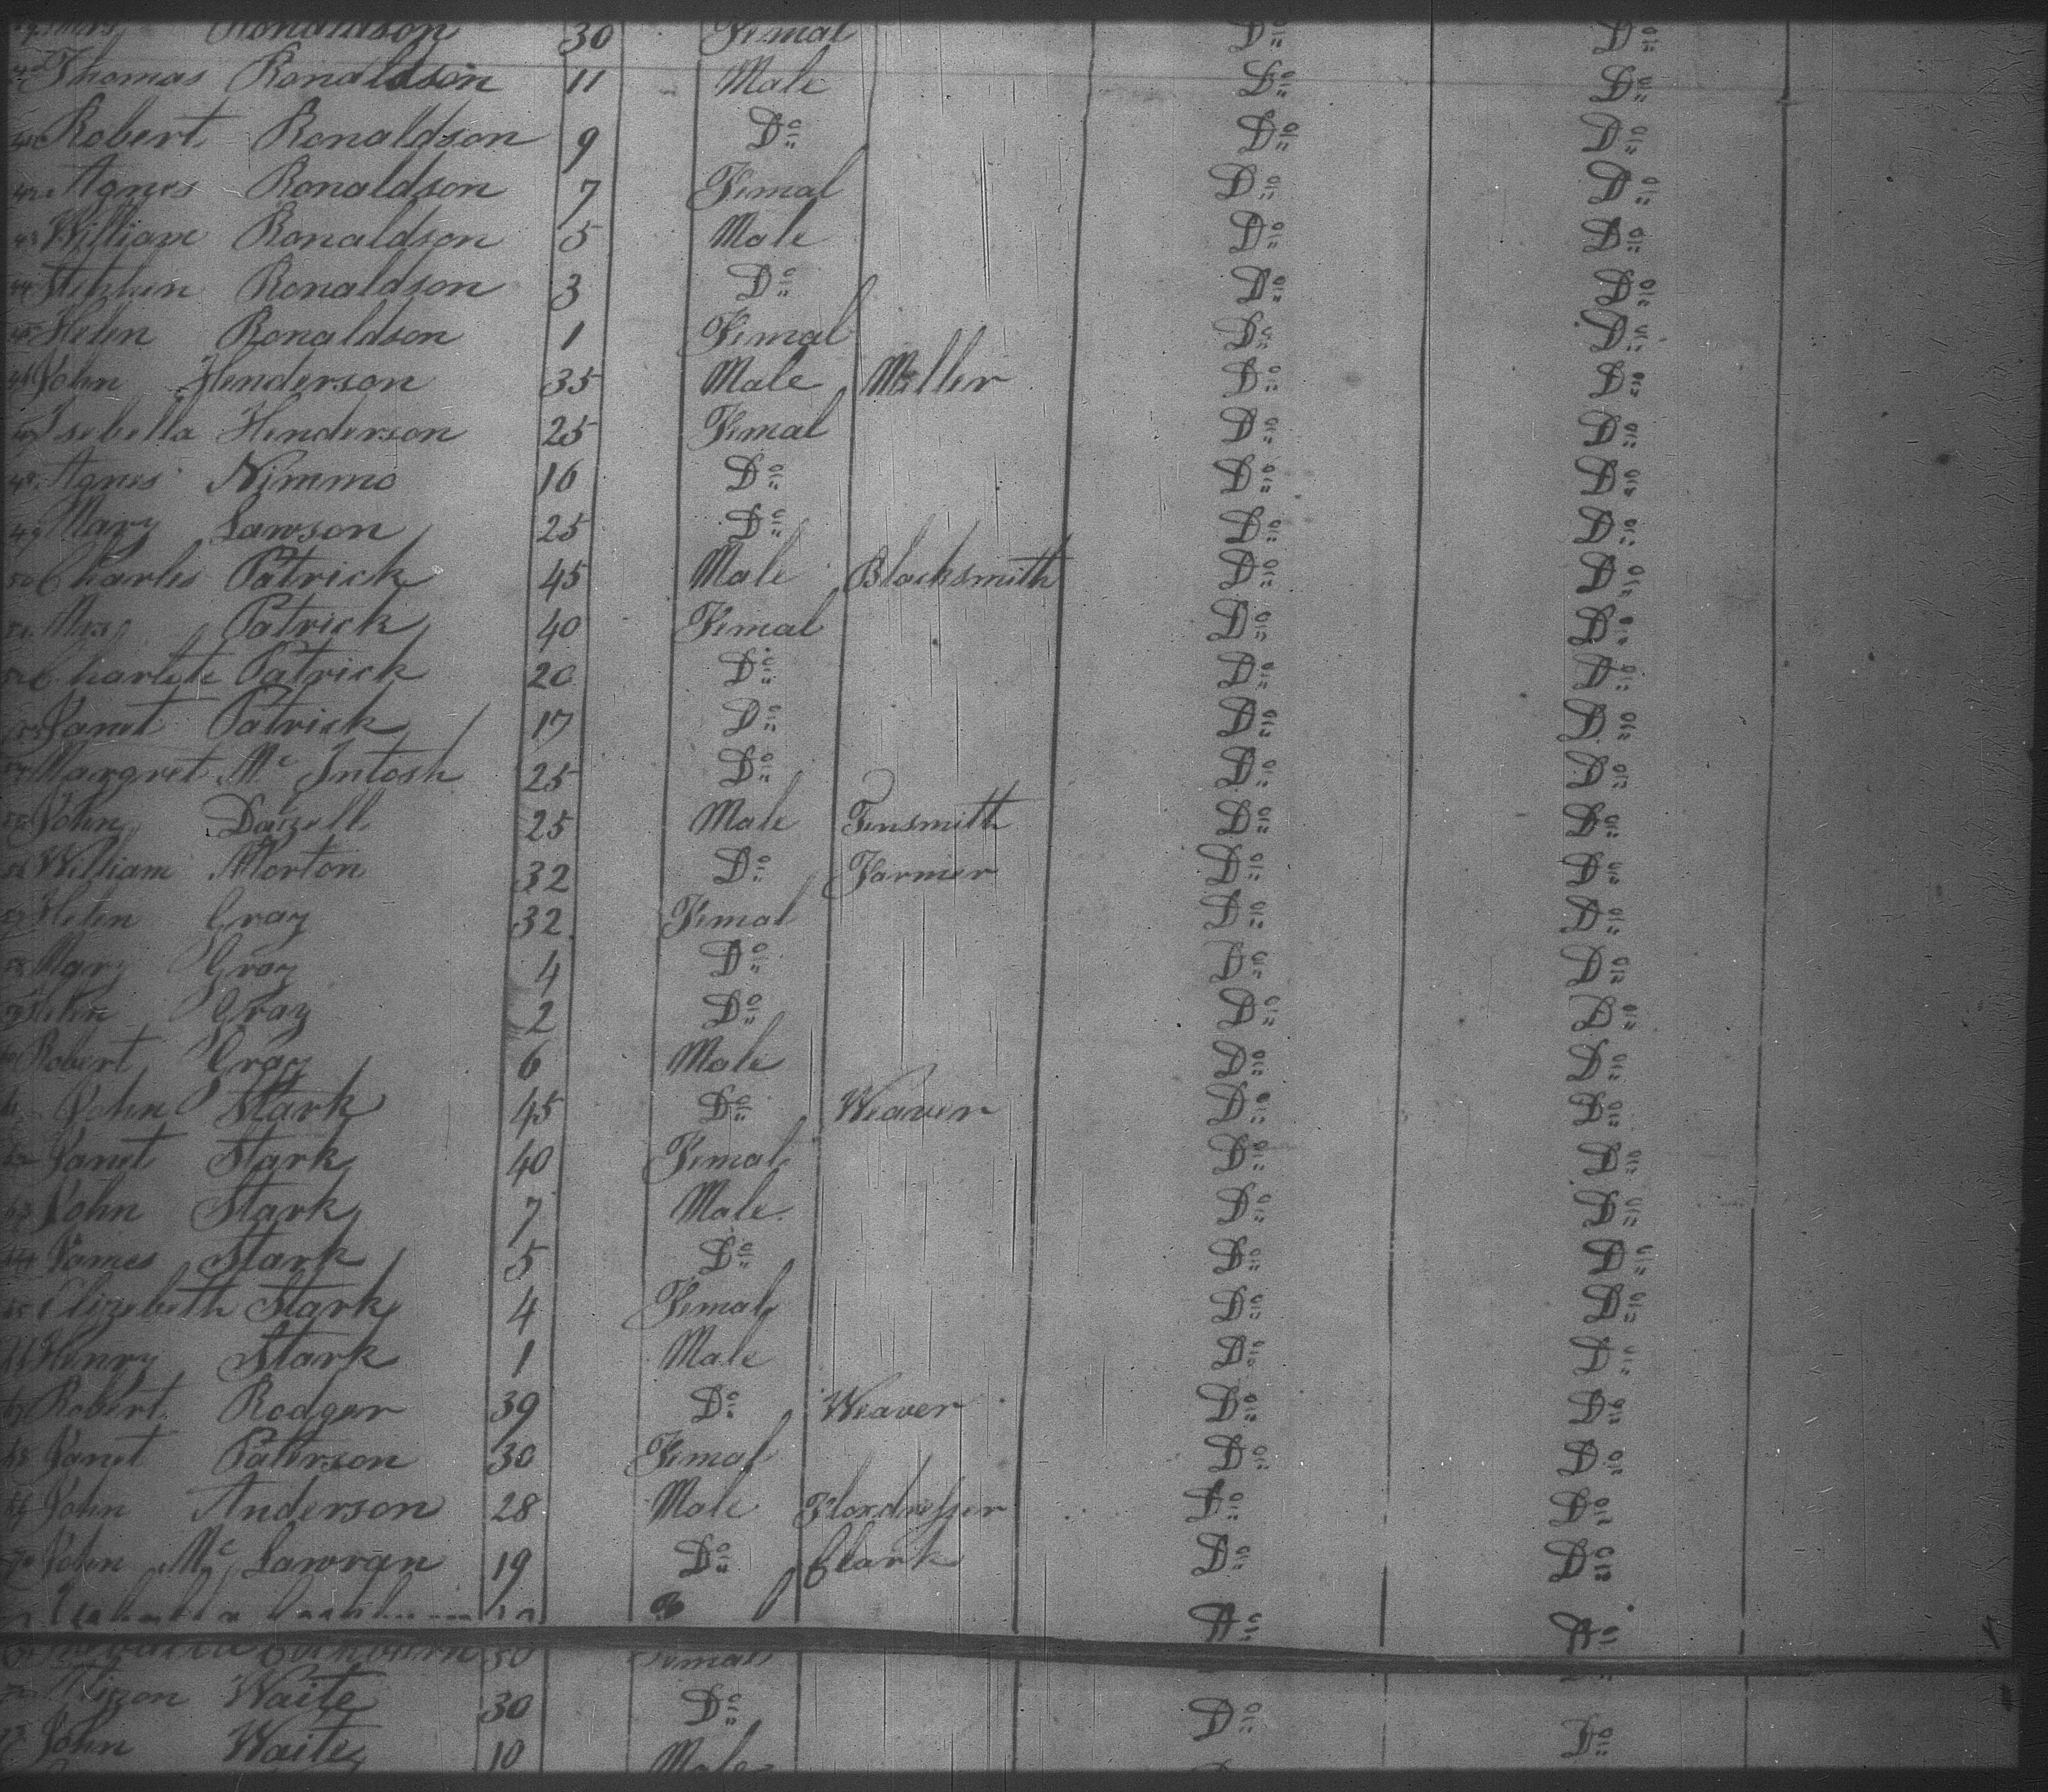 39 Mrs Ronaldson 30 Femal Do Do
40 Thomas Ronaldson 11 Male Do Do
41 Robert Ronaldson 9 Do Do Do
42 Agnes Ronaldson 7 Femal Do Do
43 William Ronaldson 5 Male Do Do
44 Stephen Ronaldson 3 Do Do Do
45 Helen Ronaldson 1 Femal Do Do
46 John Henderson 35 Male Miller Do Do
47 Isebella Henderson 25 Femal Do Do
48 Agnes Nimmo 16 Do Do Do
49 Mary Lawson 25 Do Do Do
50 Charles Patrick 45 Male Blacksmith Do Do
51 Mrs Patrick 40 Femal Do Do
52 Charlotte Patrick 20 Do Do Do
53 Janet Patrick 17 Do Do Do
54 Margret Mc Intosh 25 Do Do Do
55 John Dazell 25 Male Tinsmith Do Do
56 William Morton 32 Do Farmer Do Do
57 Helen Gray 32 Femal Do Do
58 Mary Gray 4 Do Do Do
59 Helen Gray 2 Do Do Do
60 Robert Gray 6 Male Do Do
61 John Stark 45 Do Weaver Do Do
62 Janet Stark 40 Femal Do Do
63 John Stark 7 Male Do Do
64 James Stark 5 Do Do Do
65 Elizebeth Stark 4 Femal Do Do
66 Henry Stark 1 Male Do Do
67 Robert Rodger 39 Do Weaver Do Do
68 Janet Paterson 30 Femal Do Do
69 John Anderson 28 Male Flaxdresser Do Do
70 John Mc Lawran 19 Do Clark Do Do
71 30 Femal Do Do
72 Waite 30 Do Do Do
73 John Waite 10 Male